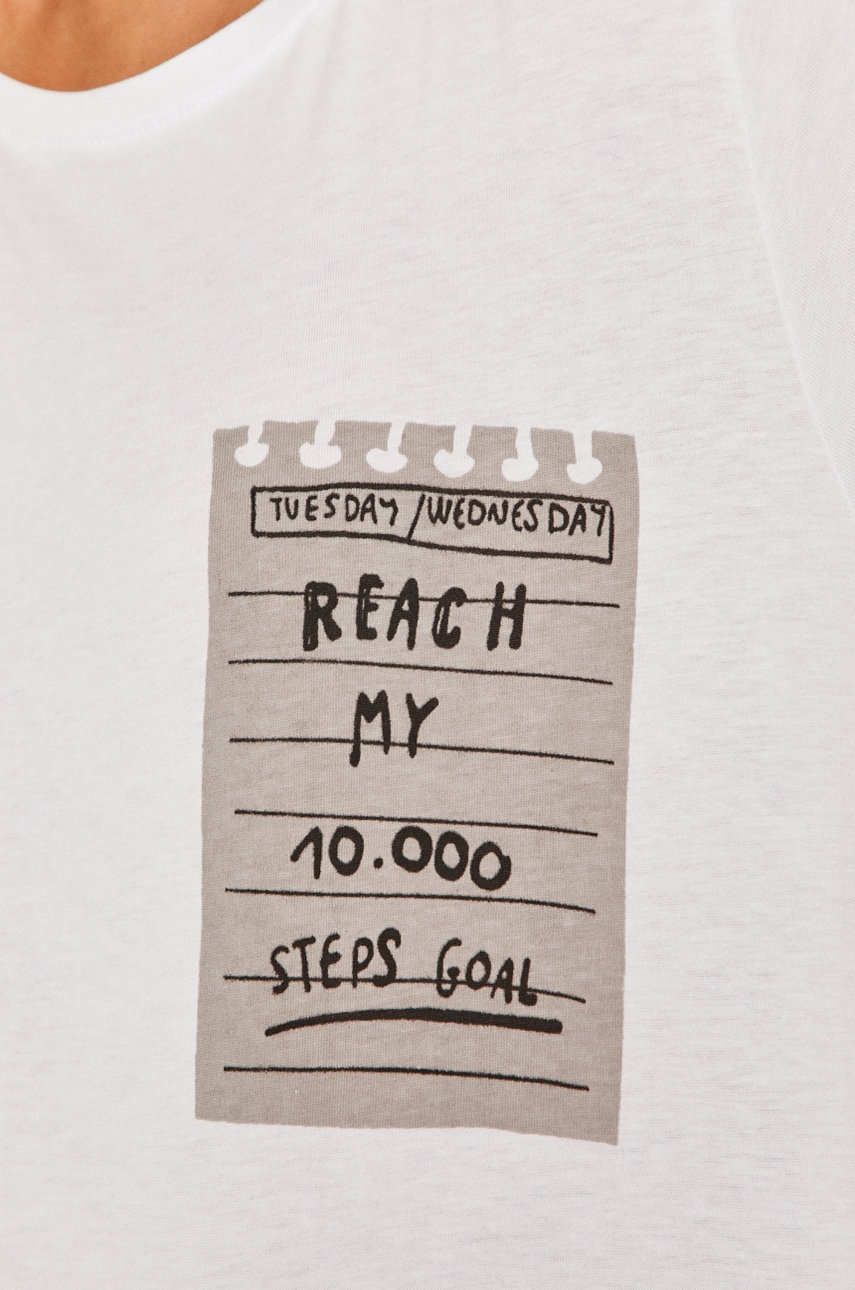 TUESDAY/WEDNESDAY
REACH
MY
10.000
STEPS GOAL